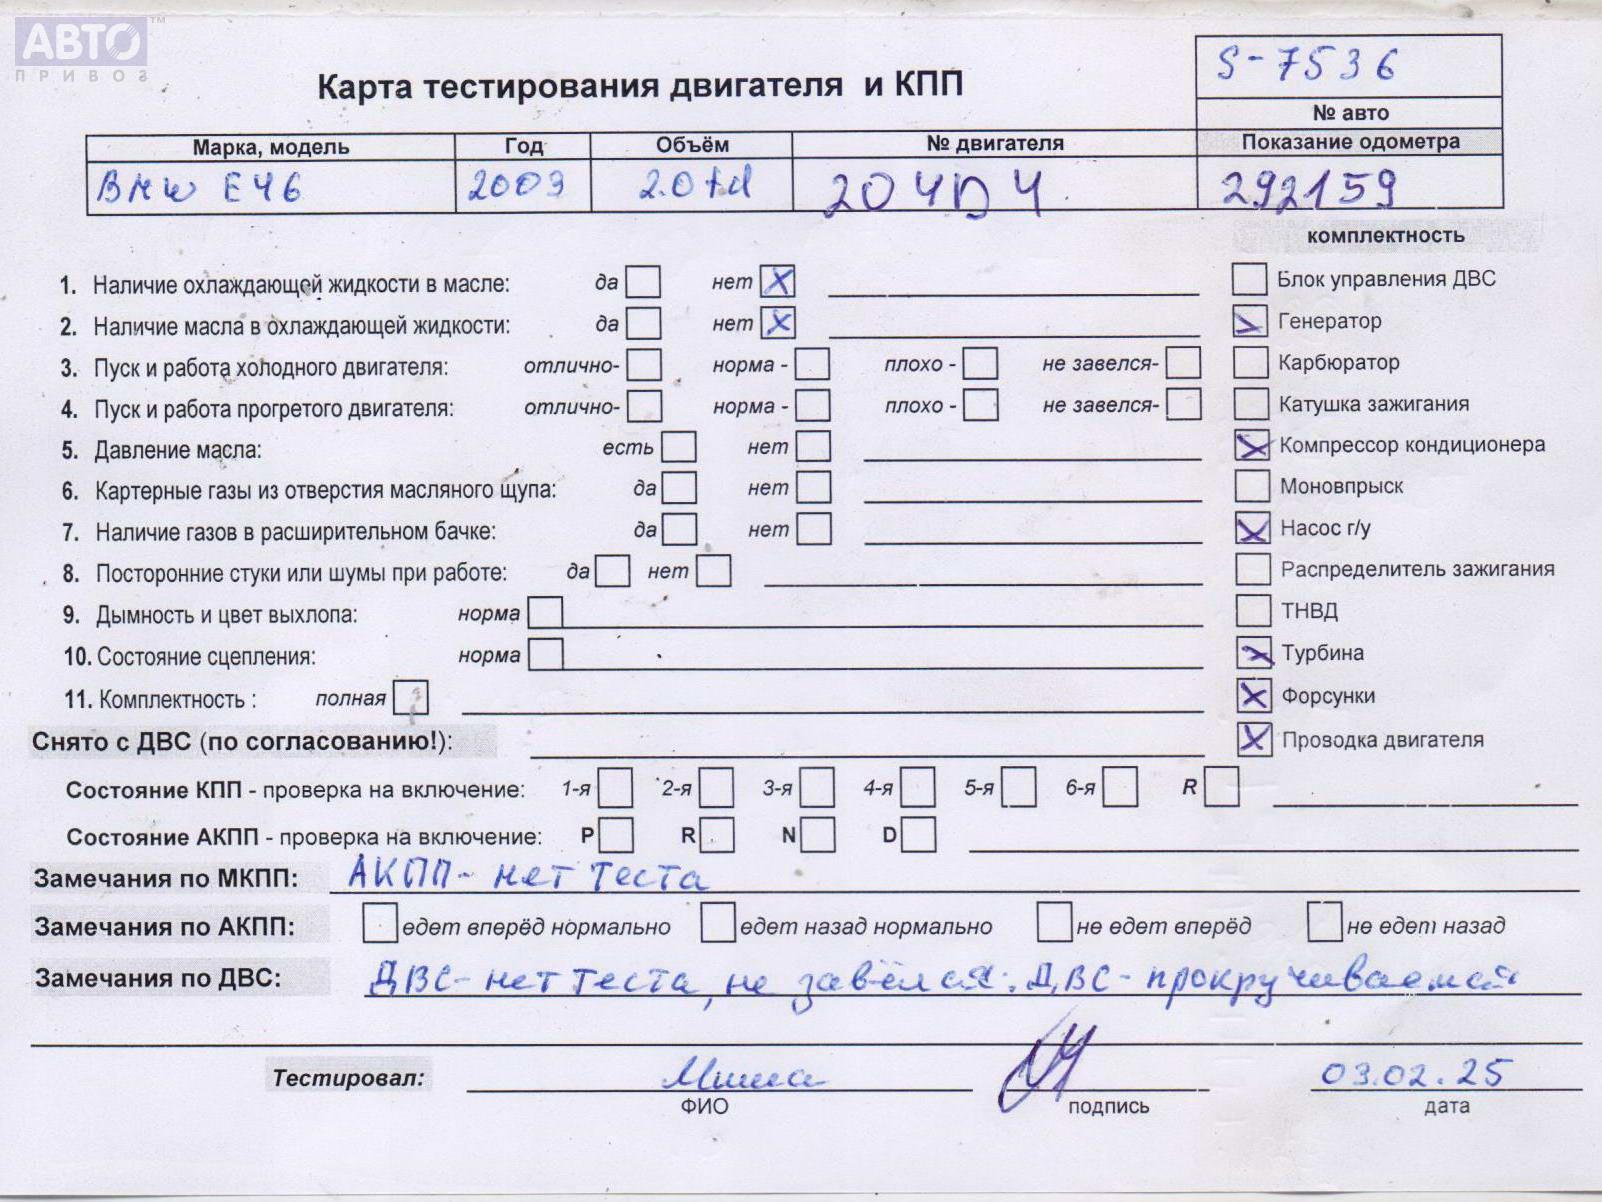 АВТО™
ПРИВОЗ
S-7536
Карта тестирования двигателя и КПП
№ авто
Марка, модель Год Объём № двигателя Показание одометра
BMW E46 2003 2.0td 204D4 292159
комплектность
1. Наличие охлаждающей жидкости в масле: да нет X
Блок управления ДВС
2. Наличие масла в охлаждающей жидкости: да нет X
Генератор
3. Пуск и работа холодного двигателя: отлично- норма - плохо - не завелся-
Карбюратор
4. Пуск и работа прогретого двигателя: отлично- норма - плохо - не завелся-
Катушка зажигания
5. Давление масла: есть нет
Компрессор кондиционера
6. Картерные газы из отверстия масляного щупа: да нет
Моновпрыск
7. Наличие газов в расширительном бачке: да нет
Насос г/у
8. Посторонние стуки или шумы при работе: да нет
Распределитель зажигания
9. Дымность и цвет выхлопа: норма
ТНВД
10. Состояние сцепления: норма
Турбина
11. Комплектность : полная
Форсунки
Снято с ДВС (по согласованию!):
Проводка двигателя
Состояние КПП - проверка на включение: 1-я 2-я 3-я 4-я 5-я 6-я R
Состояние АКПП - проверка на включение: P R N D
Замечания по МКПП: АКПП- нет теста
Замечания по АКПП: едет вперёд нормально едет назад нормально не едет вперёд не едет назад
Замечания по ДВС: ДВС- нет теста, не завёлся. ДВС- прокручивается
Тестировал: Миша 03.02.25
ФИО подпись дата